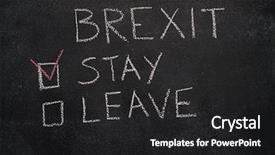 BREXIT
STAY
LEAVE
CRYSTAL
Templates for PowerPoint